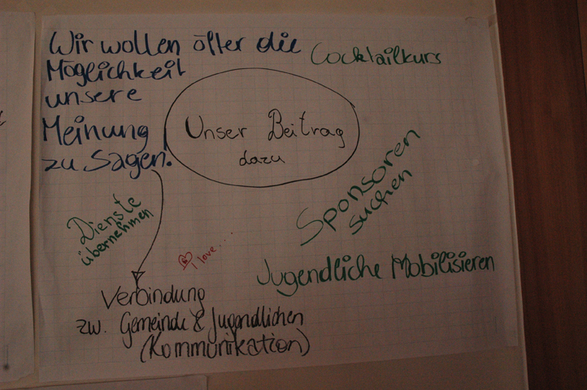 Wir wollen öfter die
Möglichkeit
unsere
Meinung
zu sagen!
Cocktailkurs
Unser Beitrag
dazu
Sponsoren
suchen
Dienste
übernehmen
I love...
Jugendliche Mobilisieren
Verbindung
zw. Gemeinde & Jugendlichen
(Kommunikation)